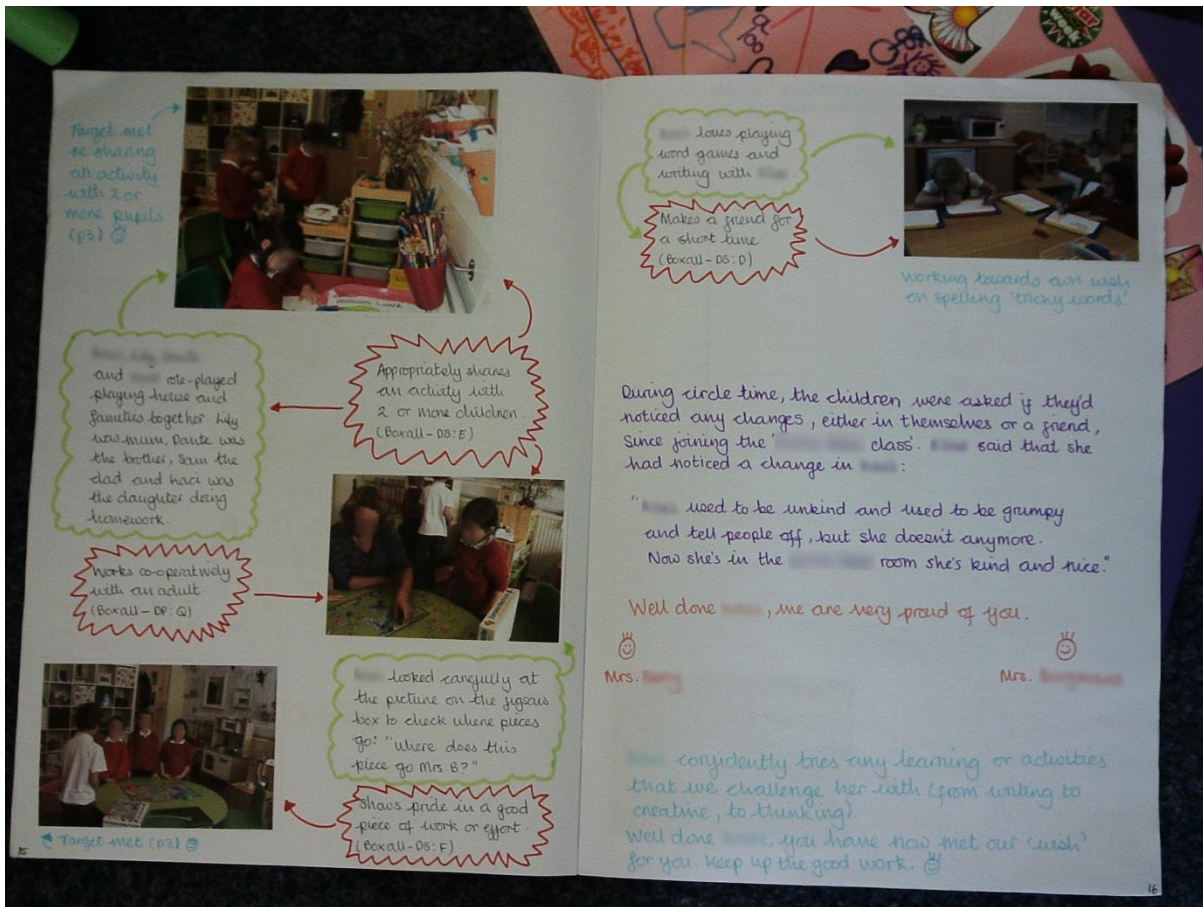 Target met
re sharing
an activity
with 2 or
more pupils
(p3)
and role-played
playing house and
families together. Lily
was mum, Dante was
the brother, Sam the
dad and was
the daughter doing
homework.
Appropriately shares
an activity with
2 or more children.
(Boxall - DS: E)
Works co-operatively
with an adult.
(Boxall - DP: Q)
looked carefully at
the picture on the jigsaw
box to check where pieces
go: "Where does this
piece go Mrs. B?"
Shows pride in a good
piece of work or effort.
(Boxall - DS: F)
Target met (p3)
15
loves playing
word games and
writing with
Makes a friend for
a short time
(Boxall - DS: D)
Working towards own wish
on spelling 'tricky words'.
During circle time, the children were asked if they'd
noticed any changes, either in themselves or a friend,
since joining the ' class'. said that she
had noticed a change in :
" used to be unkind and used to be grumpy
and tell people off, but she doesn't anymore.
Now she's in the room she's kind and nice."
Well done , we are very proud of you.
Mrs.
Mrs.
confidently tries any learning or activities
that we challenge her with (from writing to
creative, to thinking).
Well done , you have now met our 'wish'
for you. Keep up the good work.
16
week